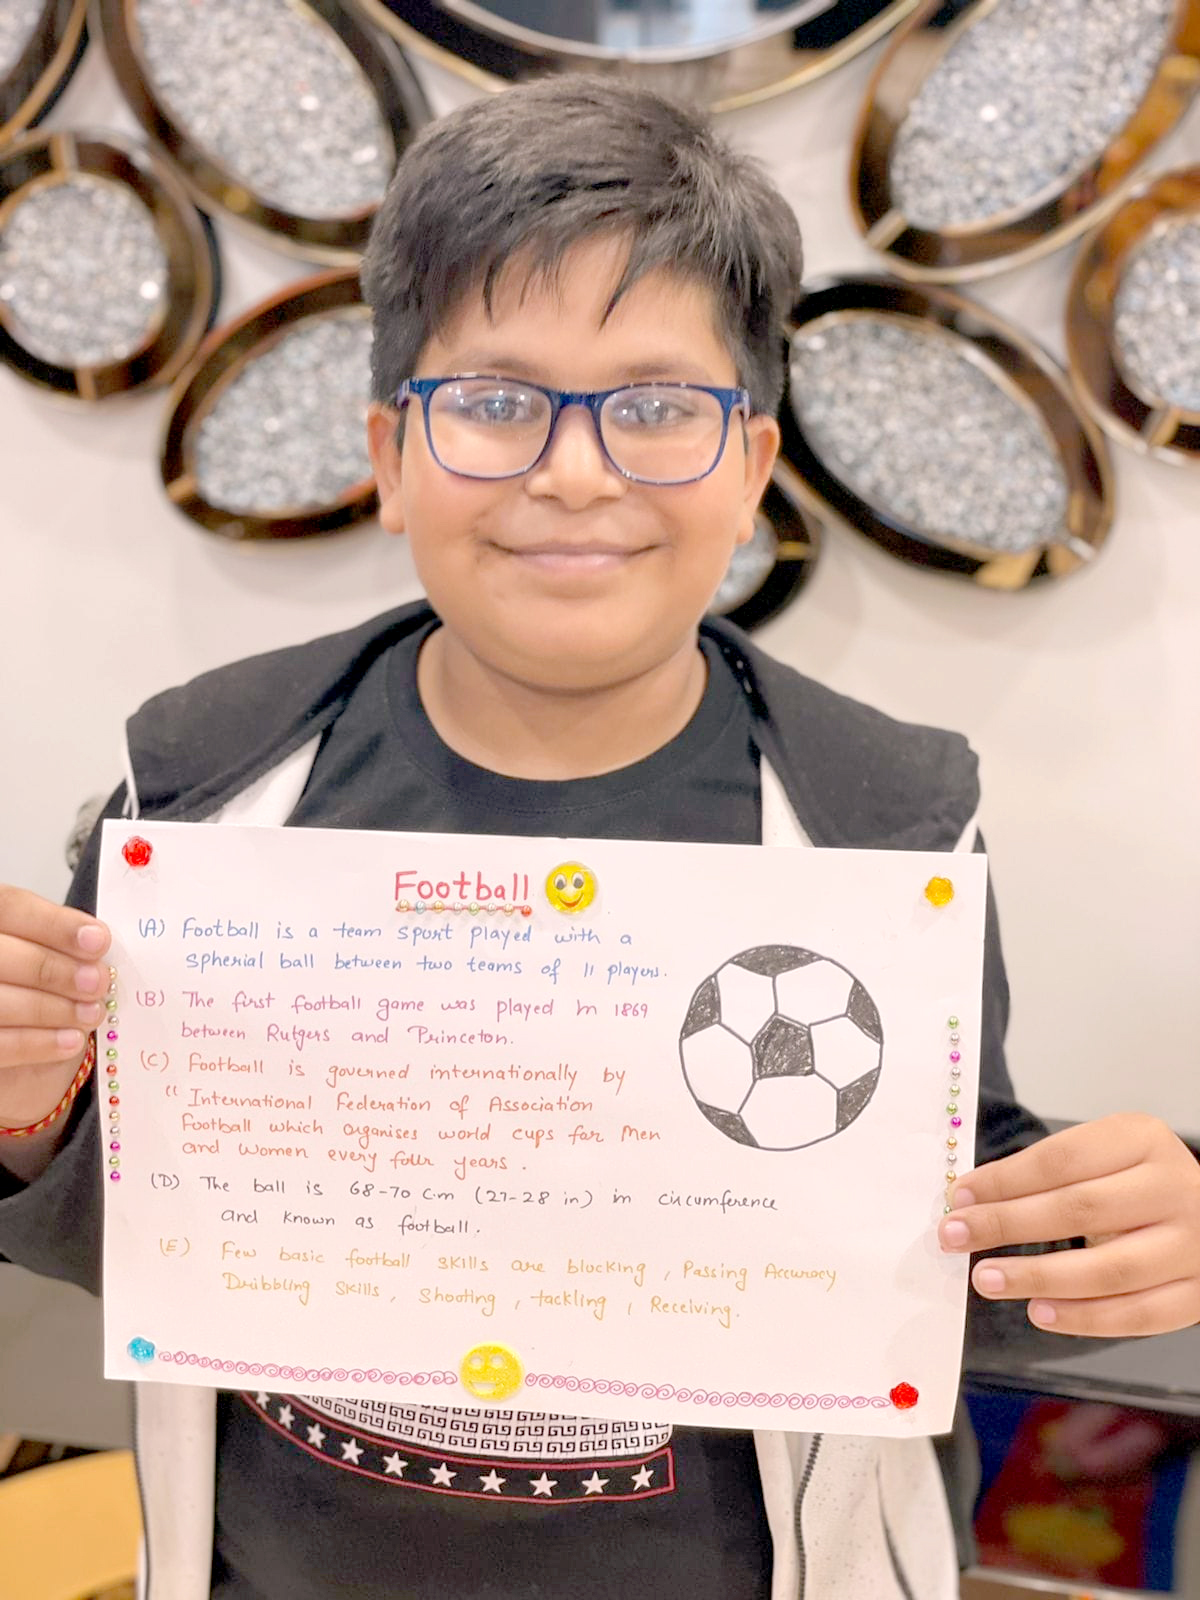 Football
(A) Football is a team sport played with a
spherial ball between two teams of 11 players.
(B) The first football game was played in 1869
between Rutgers and Princeton.
(C) Football is governed internationally by
" International Federation of Association
Football which organises world cups for Men
and women every four years.
(D) The ball is 68-70 c.m (27-28 in) in circumference
and known as football.
(E) Few basic football skills are blocking, Passing Accuracy
Dribbling skills, Shooting, tackling, Receiving.